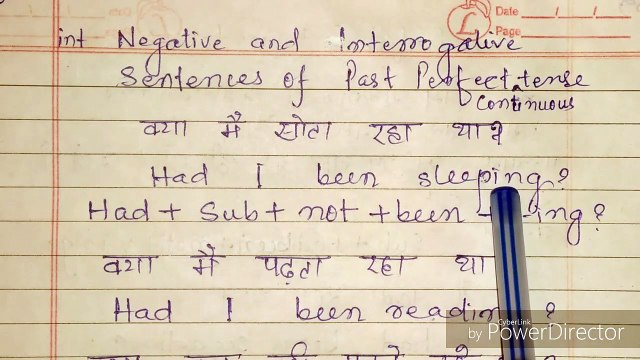 Date
Page
int Negative and Interrogative
Sentences of Past Perfect tense
Continuous
क्या मैं सोता रहा था?
Had I been sleeping?
Had + Sub + not + been + ing?
क्या मैं पढ़ता रहा था
Had I been reading ?
CyberLink
by PowerDirector